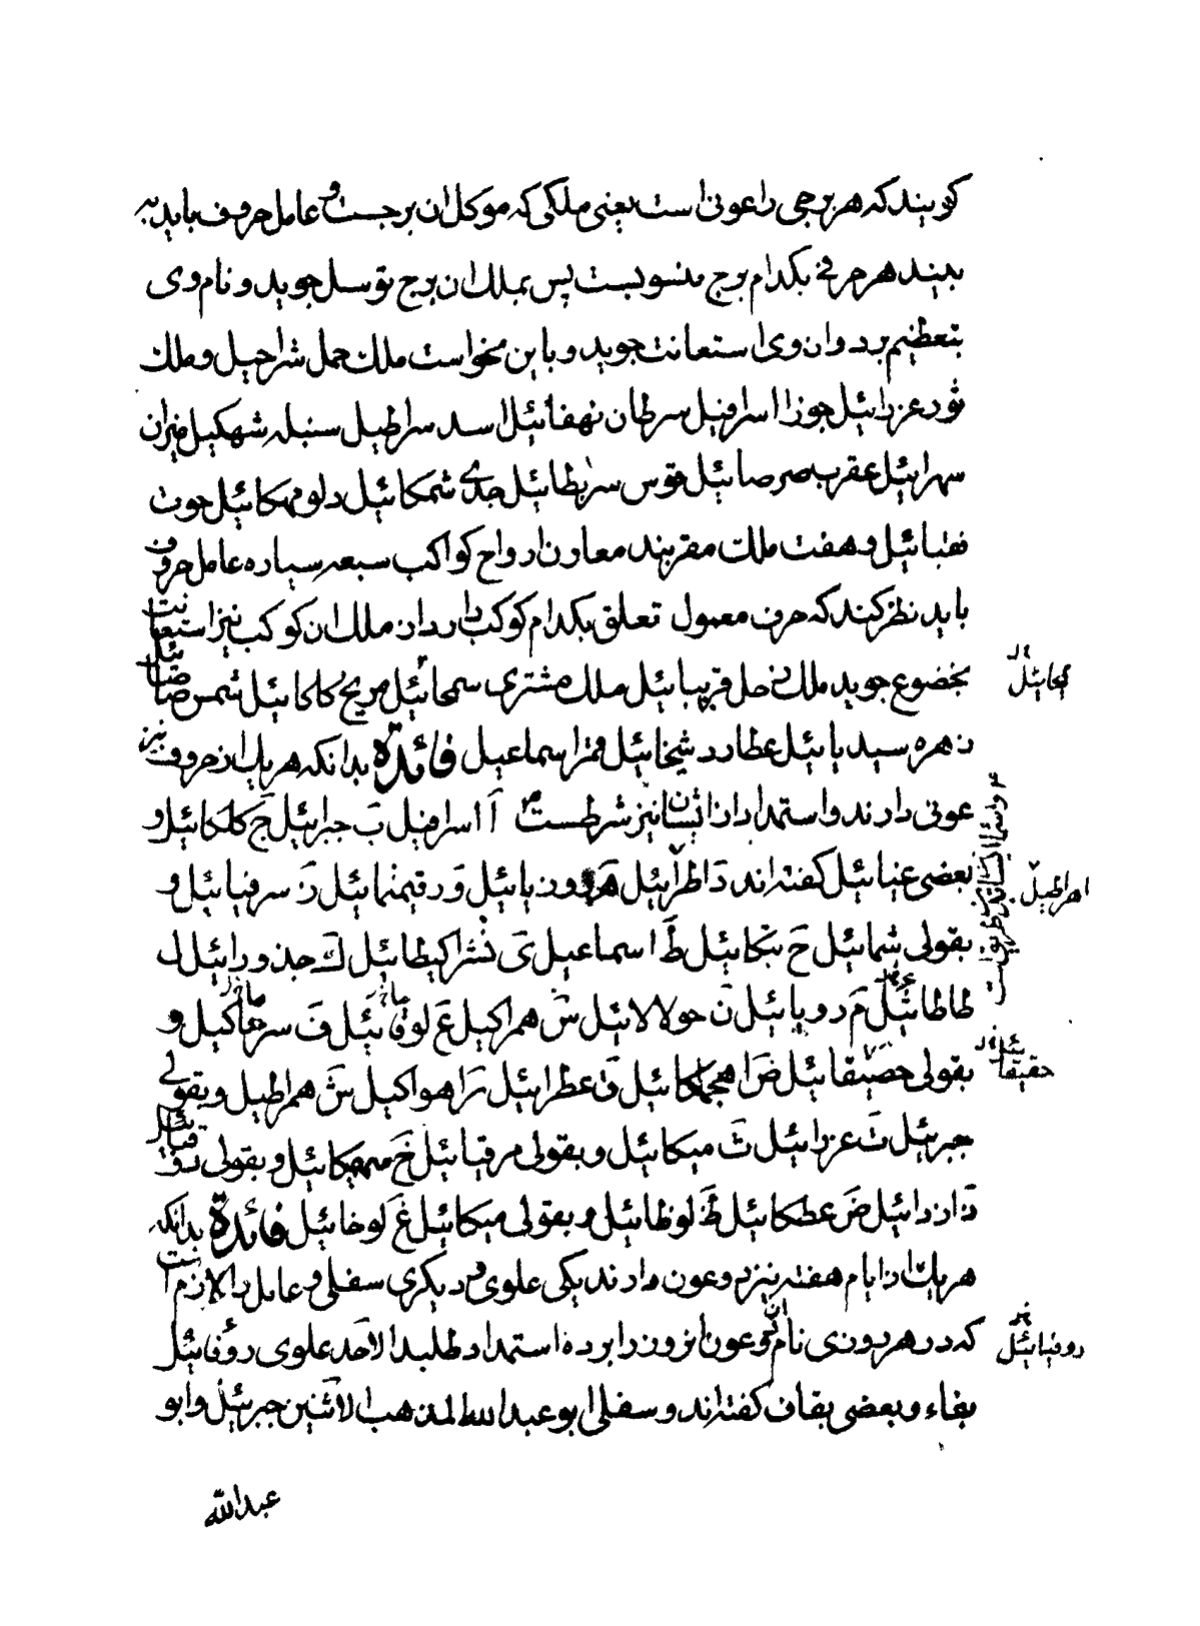 کویند که هر برجی را عونی است یعنی ملکی که موکل ان برجست و عامل حروف باید به
بیند هر حرفی بکدام برج منسوبست پس بملک ان برج توسل جوید و نام وی
بتعظیم برد و از وی استعانت جوید و باین نحواست ملک حمل شراحیل و ملک
ثور عزرائیل جوزا اسرافیل سرطان نهفائیل اسد سراطیل سنبله شهکیل میزان
سهرائیل عقرب صرصائیل قوس سریطائیل جدی شمکائیل دلو مهکائیل حوت
فقبائیل و هفت ملک مقربند معاون ارواح کواکب سبعه سیاره عامل حروف
باید نظر کند که حرف معمول تعلق بکدام کوکب دارد از ملک ان کوکب نیز استعانت
بخضوع جوید ملک زحل قریبائیل ملک مشتری سمحائیل مریخ کاکائیل شمس
زهره سیدیائیل عطارد شیخائیل قمر اسماعیل فائدة بدانکه هریک از حروف نیز
عونی دارند و استمداد از ایشان نیز شرطست آ اسرافیل ب جبرائیل ج کلکائیل و
بعضی عنیائیل کفته اند د اطرائیل وزیائیل و رقیمنمائیل ز سرفیائیل و
بقولی شمائیل ح بتکائیل ط اسماعیل ی نشراکیطائیل ک جذورائیل ل
طاطائیل م رویائیل ن حولالائیل س همراکیل ع ف سرحماکیل و
بقولی ص ق عطرائیل ر اهواکیل ش همراطیل و بقولی
جبرئیل ت عزرائیل ث میکائیل و بقولی مرقیائیل خ مهکائیل و بقولی
ذ ازرائیل ض عطکائیل ظ لوظائیل و بقولی میکائیل غ لوخائیل فائدة بدانکه
هریک از ایام هفته نیز دو عون دارند یکی علوی و دیکری سفلی و عامل را لازم است
که در هر روزی نام دو عون ان روز را برده استمداد طلبد الاحد علوی روفائیل
بفاء و بعضی بقاف کفته اند و سفلی ابو عبدالله المذهب الاثنین جبرئیل و ابو
اهراطیل
حقیقائیل
روفیائیل
عبدالله